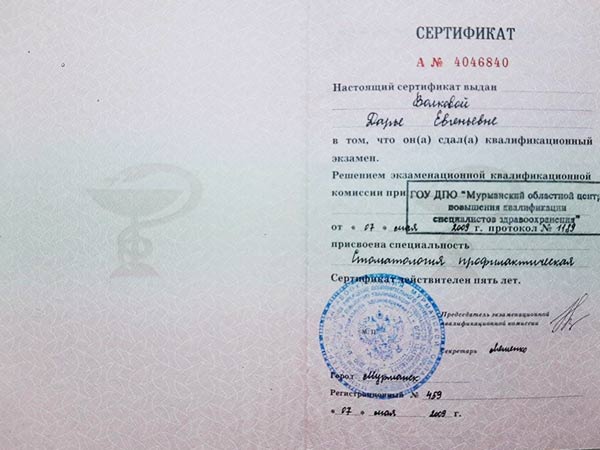 СЕРТИФИКАТ
А № 4046840
Настоящий сертификат выдан
Волковой
Дарье Евгеньевне
в том, что он(а) сдал(а) квалификационный
экзамен.
Решением экзаменационной квалификационной
комиссии при
ГОУ ДПО "Мурманский областной центр
повышения квалификации
специалистов здравоохранения"
от « 07 » мая 2009 г. протокол № 1129
присвоена специальность
Стоматология профилактическая
Сертификат действителен пять лет.
Председатель экзаменационной
квалификационной комиссии
М.П.
Секретарь
Город Мурманск
Регистрационный № 459
« 07 » мая 2009 г.